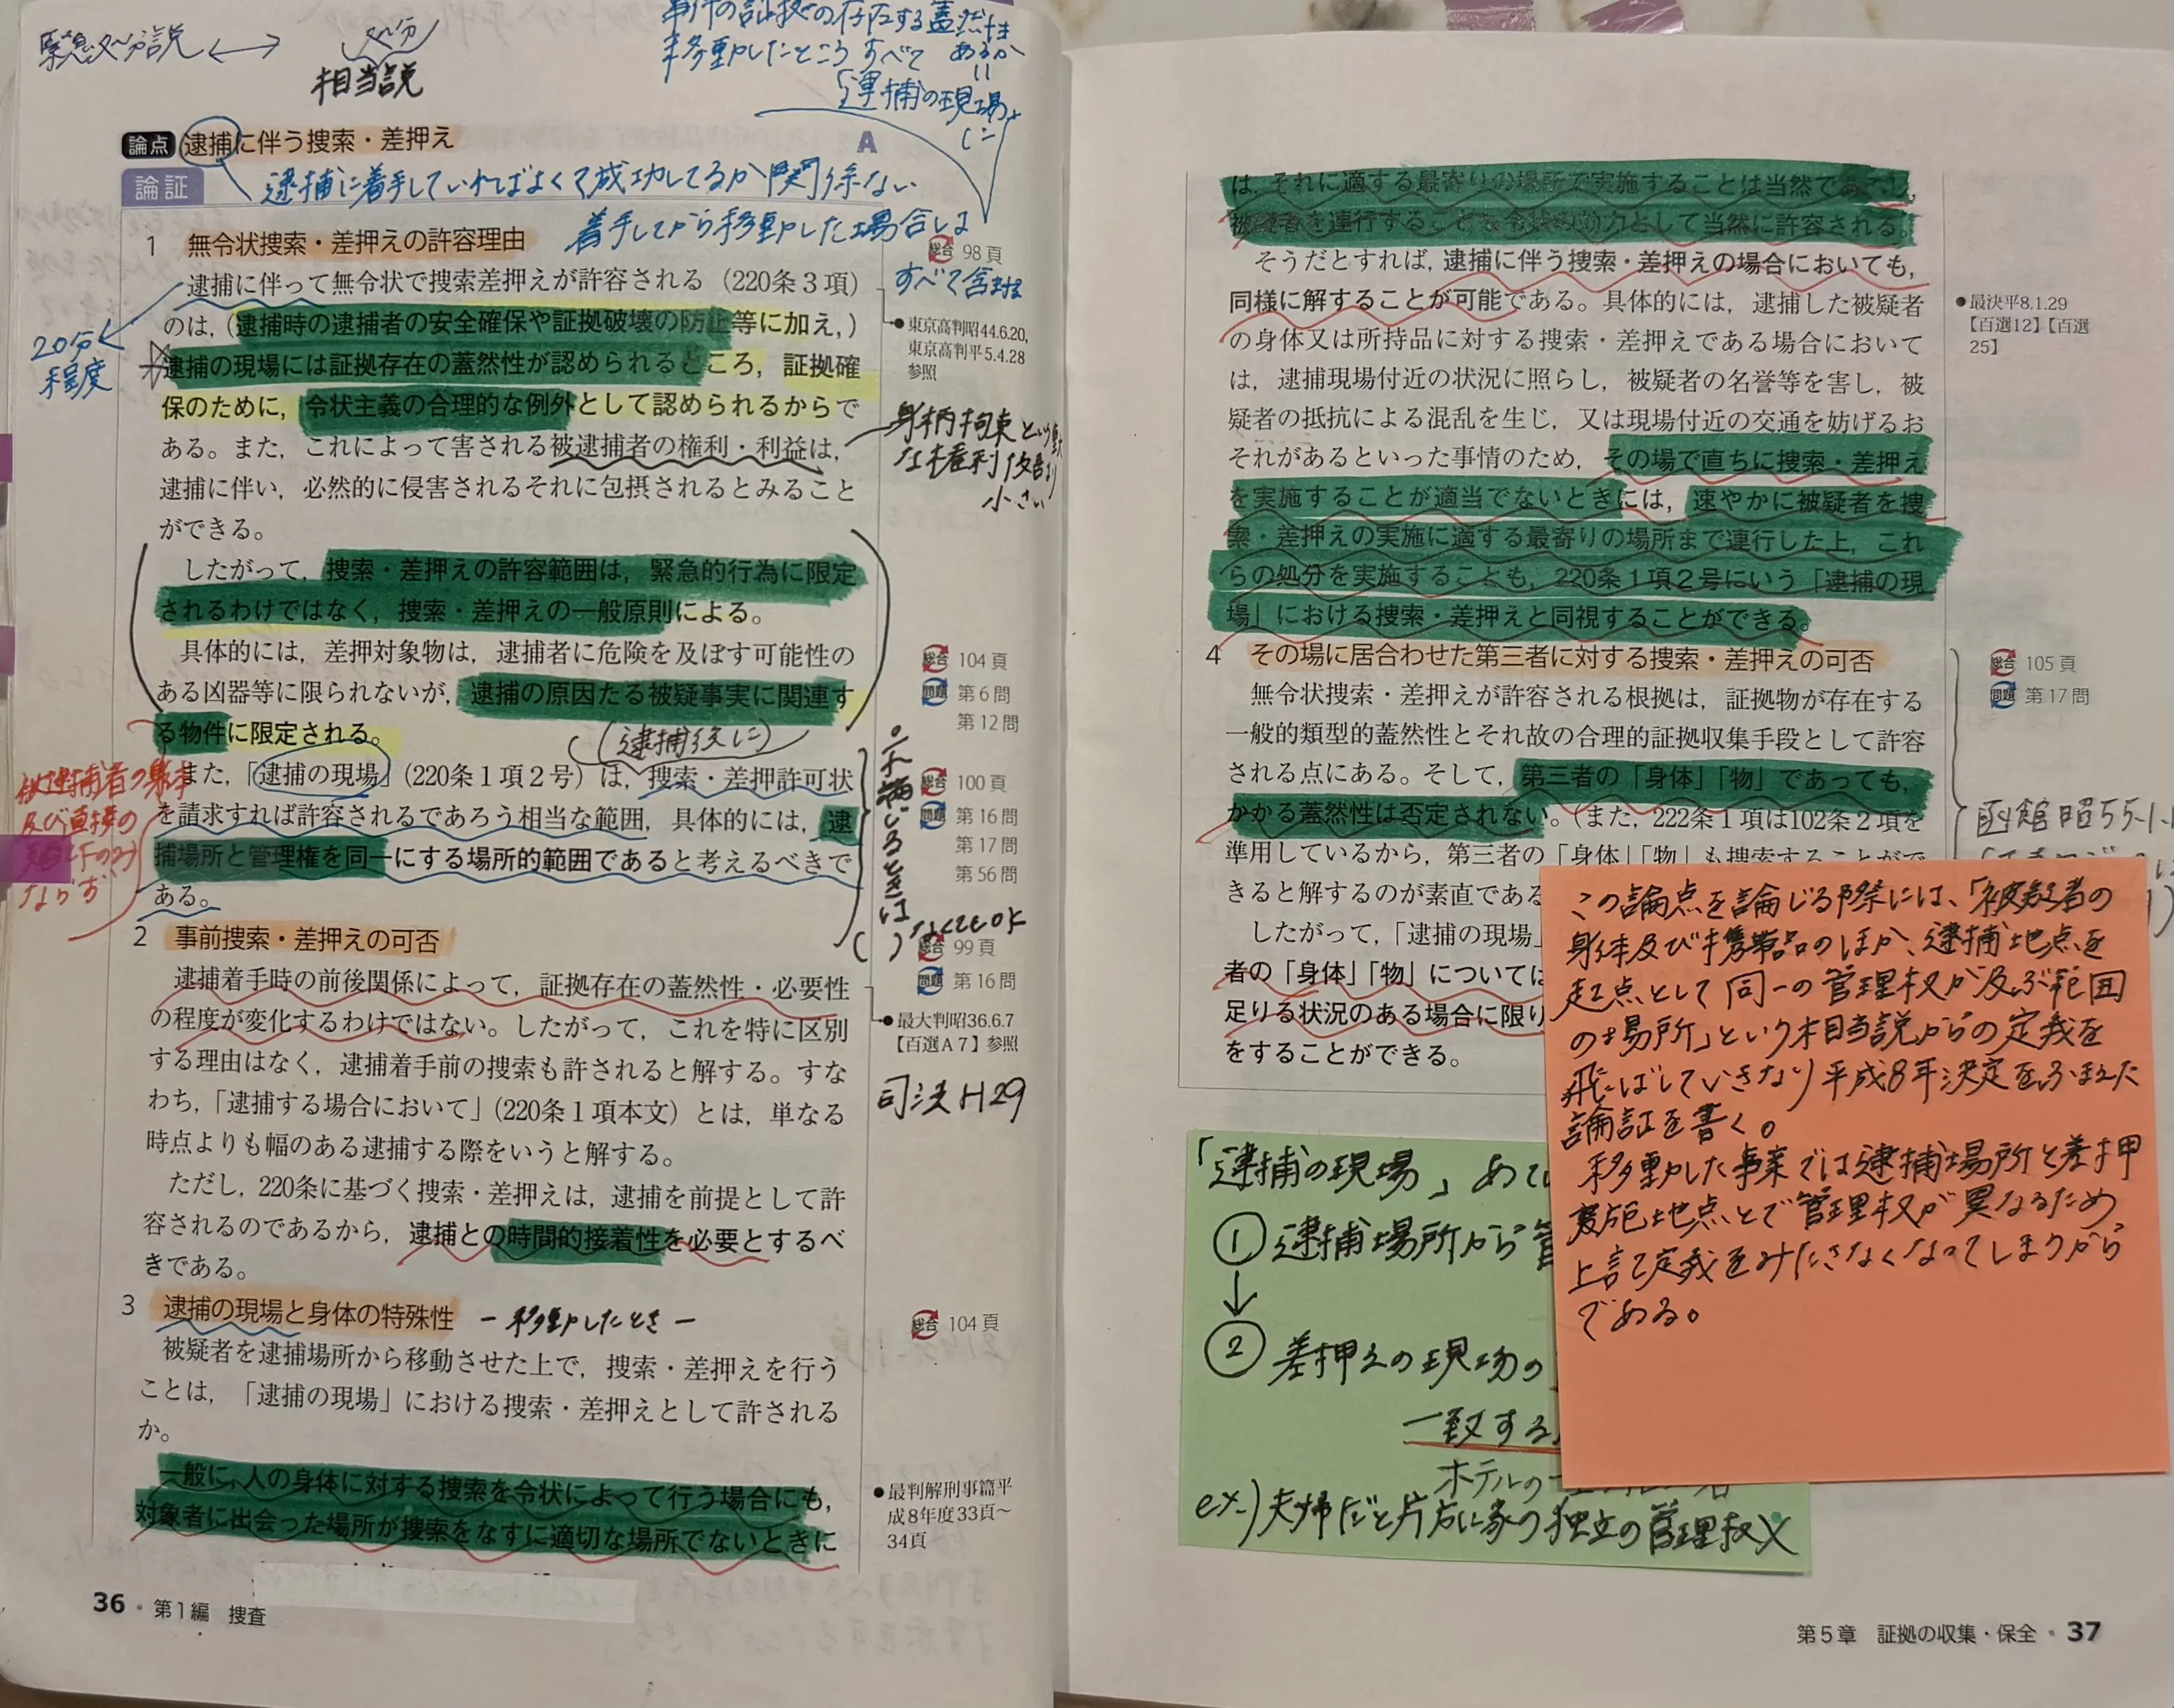 緊急処分説 ⟷ 相当説
処分
事件の証拠の存在する蓋然性
あるか
移動したところ すべて
「逮捕の現場」
に
論点 逮捕に伴う捜索・差押え A
論証
逮捕に着手していればよくて成功してるか関係ない
着手してから移動した場合は
すべて含まれる
1 無令状捜索・差押えの許容理由
総合 98頁
逮捕に伴って無令状で捜索差押えが許容される（220条3項）
のは,（逮捕時の逮捕者の安全確保や証拠破壊の防止等に加え,）
逮捕の現場には証拠存在の蓋然性が認められるところ，証拠確
保のために，令状主義の合理的な例外として認められるからで
ある。また，これによって害される被逮捕者の権利・利益は，
逮捕に伴い，必然的に侵害されるそれに包摂されるとみること
ができる。
●東京高判昭44.6.20,
東京高判平5.4.28
参照
20分
程度
身柄拘束という重大
な権利侵害より
小さい
したがって，捜索・差押えの許容範囲は，緊急的行為に限定
されるわけではなく，捜索・差押えの一般原則による。
具体的には，差押対象物は，逮捕者に危険を及ぼす可能性の
ある凶器等に限られないが，逮捕の原因たる被疑事実に関連す
る物件に限定される。
総合 104頁
問題 第6問
第12問
（逮捕後に）
また，「逮捕の現場」（220条1項2号）は，捜索・差押許可状
を請求すれば許容されるであろう相当な範囲，具体的には，逮
捕場所と管理権を同一にする場所的範囲であると考えるべきで
ある。
総合 100頁
問題 第16問
第17問
第56問
被逮捕者の
及び直接の
ならず
いるときは
なくてもOK
2 事前捜索・差押えの可否
総合 99頁
問題 第16問
逮捕着手時の前後関係によって，証拠存在の蓋然性・必要性
の程度が変化するわけではない。したがって，これを特に区別
する理由はなく，逮捕着手前の捜索も許されると解する。すな
わち，「逮捕する場合において」（220条1項本文）とは，単なる
時点よりも幅のある逮捕する際をいうと解する。
●最大判昭36.6.7
【百選A7】参照
司法H29
ただし，220条に基づく捜索・差押えは，逮捕を前提として許
容されるのであるから，逮捕との時間的接着性を必要とするべ
きである。
3 逮捕の現場と身体の特殊性 ー移動したときー
総合 104頁
被疑者を逮捕場所から移動させた上で，捜索・差押えを行う
ことは，「逮捕の現場」における捜索・差押えとして許される
か。
一般に，人の身体に対する捜索を令状によって行う場合にも，
対象者に出会った場所が捜索をなすに適切な場所でないときに
●最判解刑事篇平
成8年度33頁〜
34頁
36・第1編 捜査
は，それに適する最寄りの場所で実施することは当然であるし，
被疑者を連行することも令状の効力として当然に許容される。
そうだとすれば，逮捕に伴う捜索・差押えの場合においても，
同様に解することが可能である。具体的には，逮捕した被疑者
の身体又は所持品に対する捜索・差押えである場合において
は，逮捕現場付近の状況に照らし，被疑者の名誉等を害し，被
疑者の抵抗による混乱を生じ，又は現場付近の交通を妨げるお
それがあるといった事情のため，その場で直ちに捜索・差押え
を実施することが適当でないときには，速やかに被疑者を捜
索・差押えの実施に適する最寄りの場所まで連行した上，これ
らの処分を実施することも，220条1項2号にいう「逮捕の現
場」における捜索・差押えと同視することができる。
●最決平8.1.29
【百選12】【百選
25】
4 その場に居合わせた第三者に対する捜索・差押えの可否
総合 105頁
問題 第17問
無令状捜索・差押えが許容される根拠は，証拠物が存在する
一般的類型的蓋然性とそれ故の合理的証拠収集手段として許容
される点にある。そして，第三者の「身体」「物」であっても，
かかる蓋然性は否定されない。（また，222条1項は102条2項を
準用しているから，第三者の「身体」「物」も捜索することがで
きると解するのが素直である
したがって，「逮捕の現場」
者の「身体」「物」については
足りる状況のある場合に限り
をすることができる。
函館昭55.1.
この論点を論じる際には、「被疑者の
身体及び携帯品のほか、逮捕地点を
起点として同一の管理権が及ぶ範囲
の場所」という相当説からの定義を
飛ばしていきなり平成8年決定をふまえた
論証を書く。
移動した事案では逮捕場所と差押
実施地点とで管理権が異なるため
上記定義をみたさなくなってしまうから
である。
「逮捕の現場」あて
① 逮捕場所から管
↓
② 差押えの現場の
一致する
ホテルの
ex.) 夫婦だと片方に家の独立の管理権×
第5章 証拠の収集・保全・37